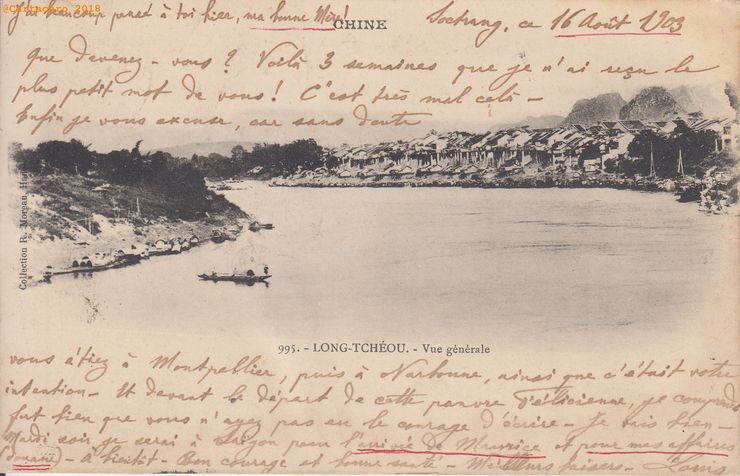 @Cartacaro 2018
J'ai beaucoup pensé à toi hier, ma bonne Mère!
CHINE
Soctrang, ce 16 Août 1903
Que devenez-vous? Voilà 3 semaines que je n'ai reçu le
plus petit mot de vous! C'est très mal celà -
Enfin je vous excuse, car sans doute
Collection R. Moreau
995. - LONG-TCHÉOU. - Vue générale
vous étiez à Montpellier, puis à Narbonne, ainsi que c'était votre
intention - Et devant le départ de cette pauvre Félicienne, je comprends
fort bien que vous n'ayez pas eu le courage d'écrire - Je vais bien -
Mardi soir je serai à Saïgon pour l'arrivée de Maurice et pour mes affaires
(douane) - A bientôt - Bon courage et bonne santé - Meilleurs baisers - Louis